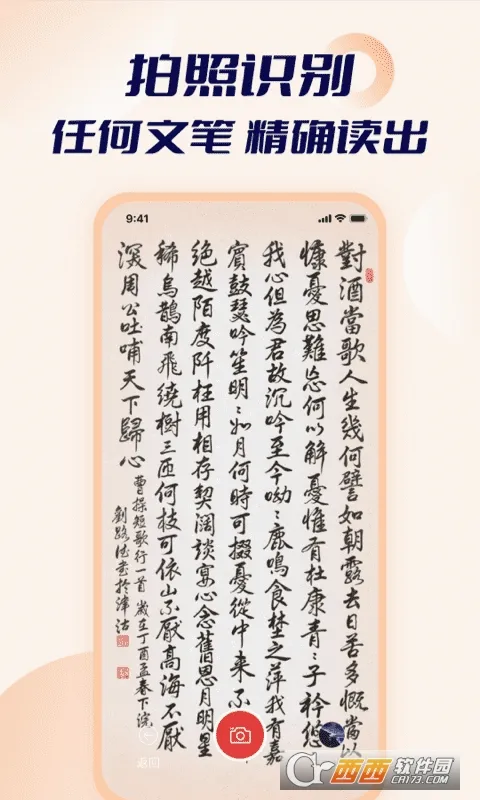 拍照识别
任何文笔 精确读出
9:41
對酒當歌人生幾何譬如朝露去日苦多慨當以
慷憂思難忘何以解憂惟有杜康青〻子衿悠
我心但為君故沉吟至今呦〻鹿鳴食埜之萍我有嘉
賓鼓瑟吟笙明〻如月何時可掇憂從中来不
絕越陌度阡枉用相存契闊談宴心念舊恩月明星
稀烏鵲南飛繞樹三匝何枝可依山不厭高海不厭
深周公吐哺天下歸心
曹操短歌行一首 歲在丁酉孟春下浣
劉路德書於津沽
返回
西西软件园
CR173.COM